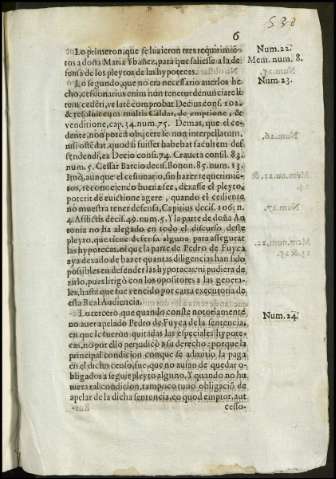 530
6
Lo primero: que se hizieron tres requirimiẽ-
tos a doña Maria Ybañez, para que saliesse a la de
fensa de los pleytos de las hypotecas.
Num. 22.
Mem. num. 8.
Lo segundo, que no era necessario auerlos he-
cho, cessionarius enim non tenetur denunciare li-
tem cedenti, vt latè comprobat Decius cons. 102.
& resoluit cum multis Caldas, de emptione, &
venditione, cap. 34. num. 75. Demas, que el ce-
dente, non potest objicere se non interpellatum,
nisi ostẽdat, quod si fuisset habebat facultatem def
fendendi, ex Decio cons. 74. Craueta consil. 83.
num. 5. Cessar Barcio decis. Bonon. 85. num. 83.
Imò, aunque el cessionario, sin hazer requirimiẽ-
tos, reconociendo huuiesse, dexasse el pleyto,
poterit de euictione agere, quando el cedente
no muestra tener defensa, Capicius decis. 106. n.
4. Afflictis decis. 40. num. 5. Y la parte de doña An
tonia no ha alegado en todo el discurso deste
pleyto, que tiene defensa alguna para assegurar
las hypotecas, ni que la parte de Pedro de Fuyca
aya dexado de hazer quantas diligencias han sido
possibles en defender las hypotecas, ni pudiera de
xarlo, pues litigò con los opositores a las genera-
les, hasta que fue vencido por carta executoria de
esta Real Audiencia.
Num. 23.
Lo tercero, que quando conste notoriamente
no auer apelado Pedro de Fuyca de la sentencia,
en que le fueron quitadas las especiales hypote-
cas, no por ello perjudicò a su derecho: porque la
principal condicion con que se admitio la paga
en el dicho censo, fue, que no auian de quedar o-
bligados a seguir pleyto alguno. Y quando no hu
uiera tal condicion, tampoco tuuo obligaciõ de
apelar de la dicha sentencia, eo quod emptor, aut
cesso-
Num. 24.